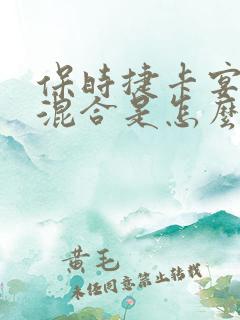 保时捷卡宴
混合是怎么
黄毛
未经同意禁止转载